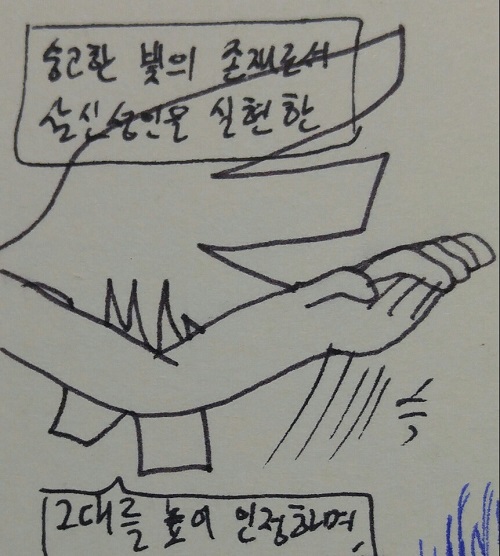 숭고한 빛의 존재로서
살신성인을 실현한
그대를 높이 인정하며,